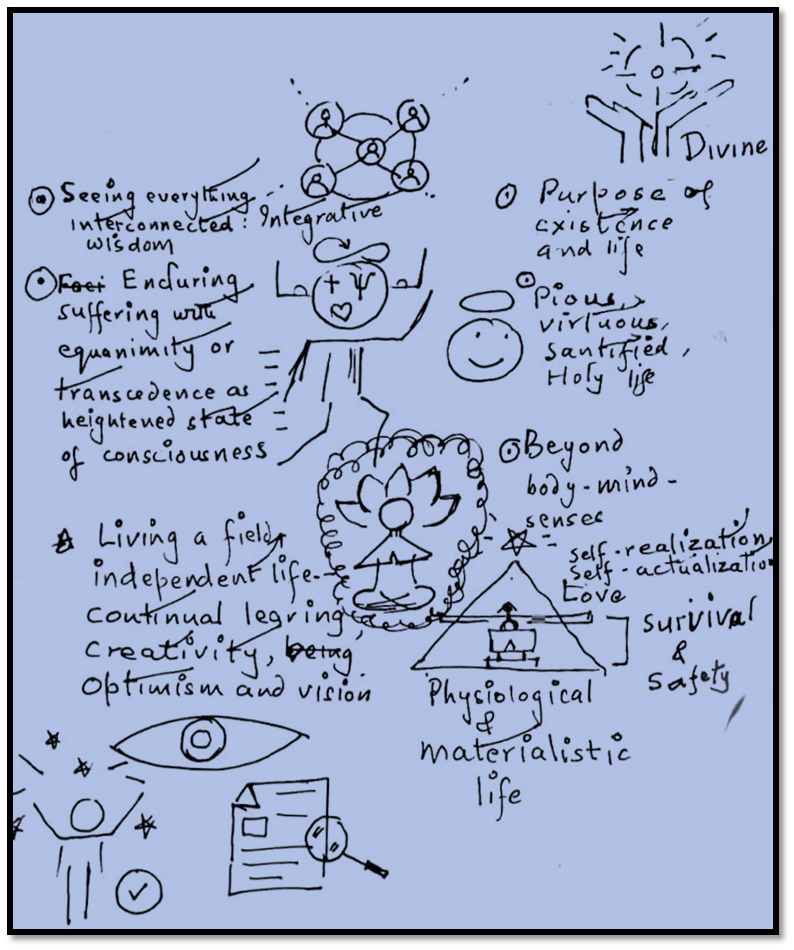 Divine
Seeing everything
interconnected: Integrative
wisdom
Purpose of
existence
and life
Faci Enduring
suffering with
equanimity or
transcedence as
heightened state
of consciousness
+ Ψ
Pious,
virtuous,
santified,
Holy life
Beyond
body-mind-
senses
self-realization
self-actualization
Love
Survival
&
Safety
Living a field
independent life-
continual legring
Creativity, being
Optimism and vision
Physiological
&
materialistic
life